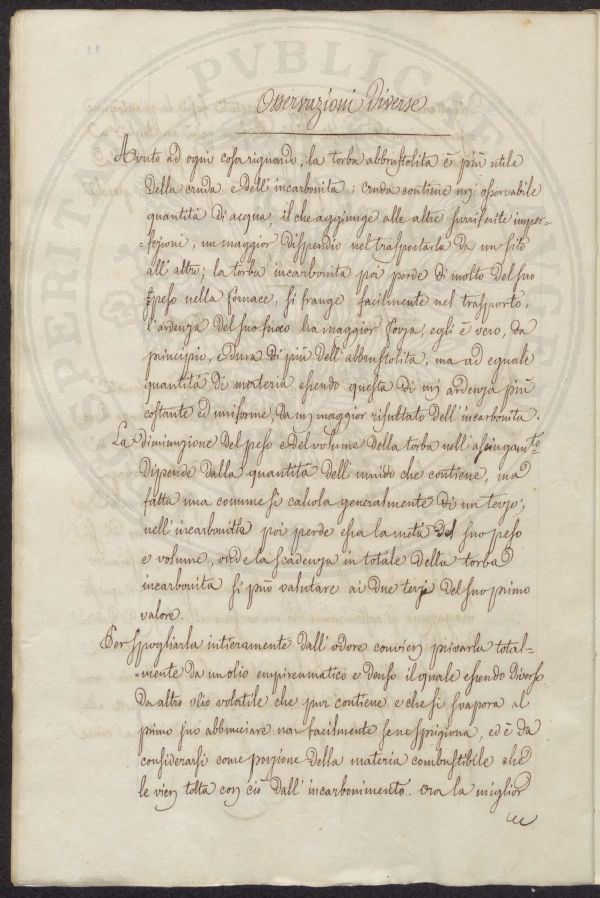 Osservazioni Diverse
Avuto ad ogni cosa riguardo, la torba abbrustolita è più utile
della cruda e dell'incarbonita: cruda contiene un osservabile
quantità di acqua, il che aggiunge alle altre surriferite imper=
=fezioni, un maggior dispendio nel trasportarla da un sito
all'altro; la torba incarbonita poi perde di molto del suo
peso nella fornace, si frange facilmente nel trasporto,
l'ardenza del suo fuoco ha maggior forza, egli è vero, da
principio, e dura di più dell'abbrustolita, ma ad eguale
quantità di materia essendo questa di un ardenza più
costante ed uniforme, da un maggior risultato dell'incarbonita.
La diminuzione del peso e del volume della torba nell'asciugamto
dipende dalla quantità dell'umido che contiene, ma
fatta una comune si calcola generalmente di un terzo;
nell'incarbonita poi perde essa la metà del suo peso
e volume, onde la scadenza in totale della torba
incarbonita si può valutare ai due terzi del suo primo
valore.
Per spogliarla intieramente dall'odore convien privarla total=
=mente da un olio empireumatico e denso il quale essendo diverso
da altro olio volatile che pur contiene e che si svapora al
primo suo abbruciare non facilmente se ne sprigiona, ed è da
considerarsi come porzione della materia combustibile che
le vien tolta con ciò dall'incarbonimento. Ora la miglior